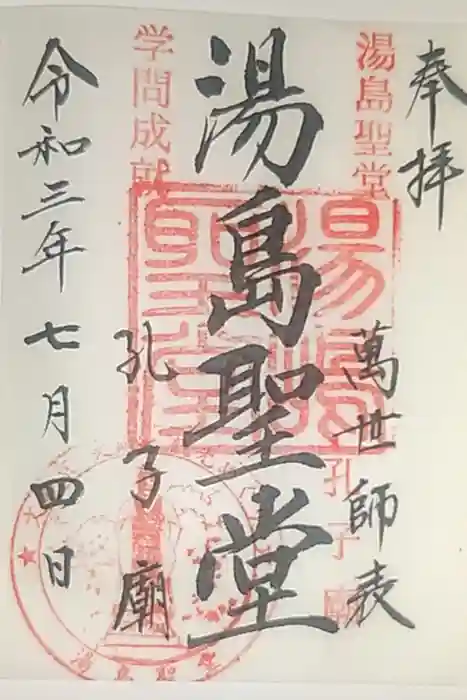 奉拝
湯島聖堂
萬世師表
孔子廟
湯島聖堂
湯島聖堂
学問成就
孔子廟
令和三年七月四日
湯島聖堂